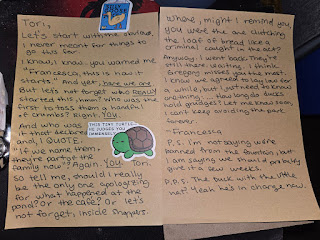 Tori,
Let's start with the obvious,
I never meant for things to
go this far.
I know, I know. you warned me
"Francesca, this is how it
starts." And yet, here we are
But let's not forget who really
started this, hmm? Who was the
first to toss them a handful
of crumbs? Right. You.
And who was
it that declared
and, I QUOTE,
"if we name them,
they're part of the
family now"? Again. You
So tell me, should I really
be the only one apologizing
for what happened at the
pond? Or the café? Or let's
not forget, inside Snappers.
THIS TINY TURTLE
HE JUDGES YOU
Whom, might I remind you,
you were the one clutching
the loaf of bread like a
criminal caught in the act?
Anyway, I went back. They're
still there, waiting. I think
Gregory misses you the most.
I know we agreed to lay low for
a while, but I just need to know
one thing... How long do ducks
hold grudges? Let me know soon, I
can't keep avoiding the park
forever.
-Francesca
P.S. I'm not saying we're
banned from the fountain, but
I am saying we should probably
give it a few weeks.
P.P.S. The duck with the little
hat? Yeah he's in charge now.